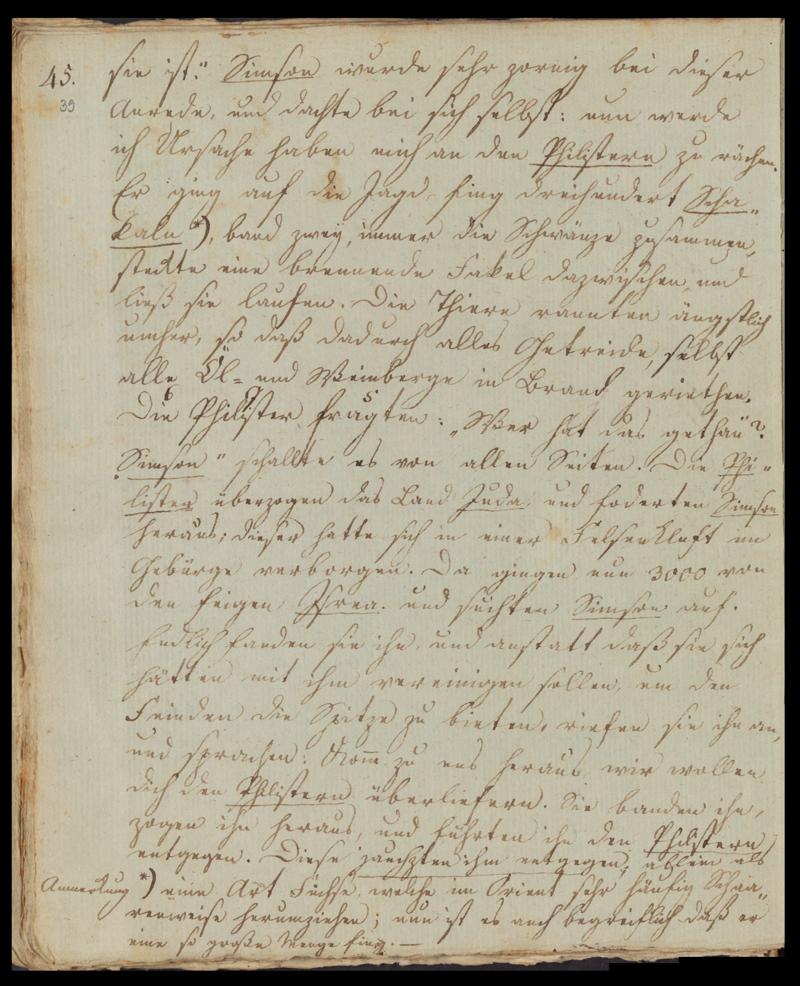 45.
39
sie ist." Simson wurde sehr zornig bei dieser
Anrede, und dachte bei sich selbst: nun werde
ich Ursache haben mich an den Philistern zu rächen.
Er ging auf die Jagd, fing dreihundert Scha-
kaln *), band zwey, immer die Schwänze zusammen,
steckte eine brennende Fakel dazwischen, und
ließ sie laufen. Die Thiere rannten ängstlich
umher, so daß dadurch alles Getreide, selbst
alle Öl- und Weinberge in Brand geriethen.
Die Philister fragten: „Wer hat das gethan"?
„Simson" schallte es von allen Seiten. Die Phi-
lister überzogen das Land Juda, und foderten Simson
heraus; dieser hatte sich in einer Felsenkluft im
Gebürge verborgen. Da gingen nun 3000 von
den feigen Isrea. und suchten Simson auf.
Endlich fanden sie ihn, und anstatt daß sie sich
hätten mit ihm vereinigen sollen, um den
Feinden die Spitze zu bieten, riefen sie ihn an,
und sprachen: Kom̅ zu uns heraus, wir wollen
dich den Philistern überliefern. Sie banden ihn,
zogen ihn heraus, und führten ihn den Philistern
entgegen. Diese jauchzten ihm entgegen; allein als
Anmerkung *) eine Art Füchse, welche im Orient sehr häufig Schaa-
renweise herumziehen; nun ist es auch begreiflich daß er
eine so große Menge fing. —